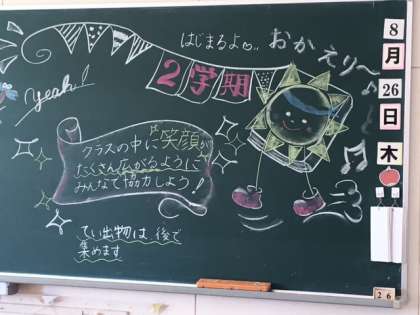 はじまるよ…
おかえり〜
yeah!
2学期
クラスの中に笑顔が
たくさん広がるように
みんなで協力しよう！
てい出物は 後で
集めます
8
月
26
日
木
26